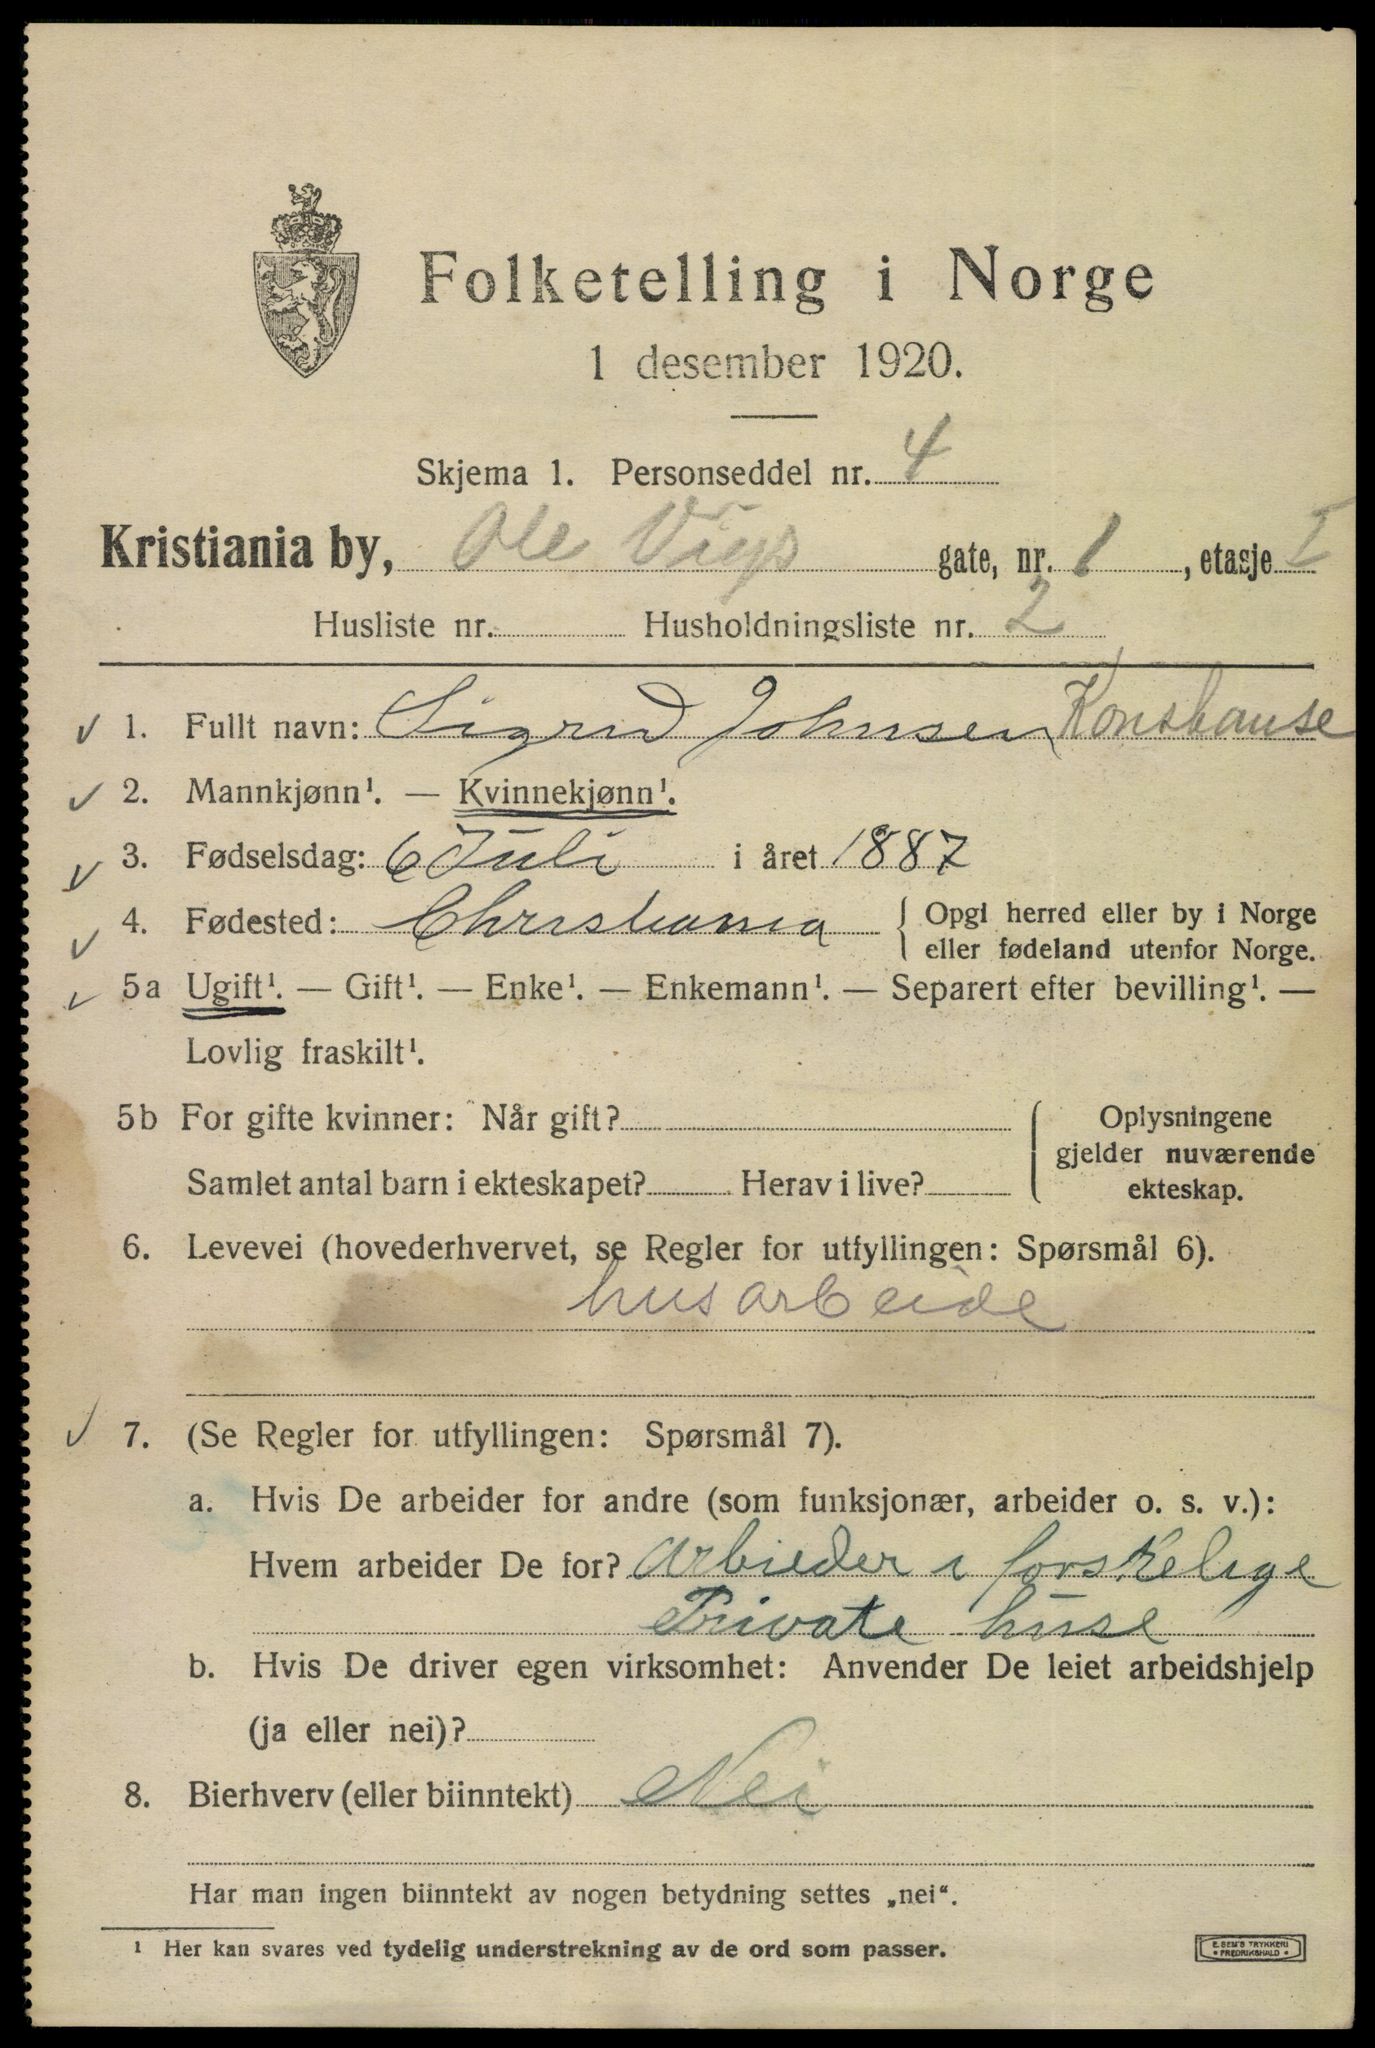 Folketelling i Norge
1 desember 1920.
Skjema 1. Personseddel nr. 4
Kristiania by, Ole Vigs gate, nr. 1, etasje I
Husliste nr. Husholdningsliste nr. 2
1. Fullt navn: Sigrid Johnsen, Konstanse
2. Mannkjønn¹. — Kvinnekjønn¹.
3. Fødselsdag: 6 Juli i året 1887
4. Fødested: Christiania { Opgi herred eller by i Norge
eller fødeland utenfor Norge.
5a Ugift¹. — Gift¹. — Enke¹. — Enkemann¹. — Separert efter bevilling¹. —
Lovlig fraskilt¹.
5b For gifte kvinner: Når gift?
Samlet antal barn i ekteskapet? Herav i live?
Oplysningene
gjelder nuværende
ekteskap.
6. Levevei (hovederhvervet, se Regler for utfyllingen: Spørsmål 6).
husarbeide
7. (Se Regler for utfyllingen: Spørsmål 7).
a. Hvis De arbeider for andre (som funksjonær, arbeider o. s. v.):
Hvem arbeider De for? Arbieder i forskelige
Private huse
b. Hvis De driver egen virksomhet: Anvender De leiet arbeidshjelp
(ja eller nei)?
8. Bierhverv (eller biinntekt) Nei
Har man ingen biinntekt av nogen betydning settes „nei“.
¹ Her kan svares ved tydelig understrekning av de ord som passer.
E. SEM'S TRYKKERI
• FREDRIKSHALD •